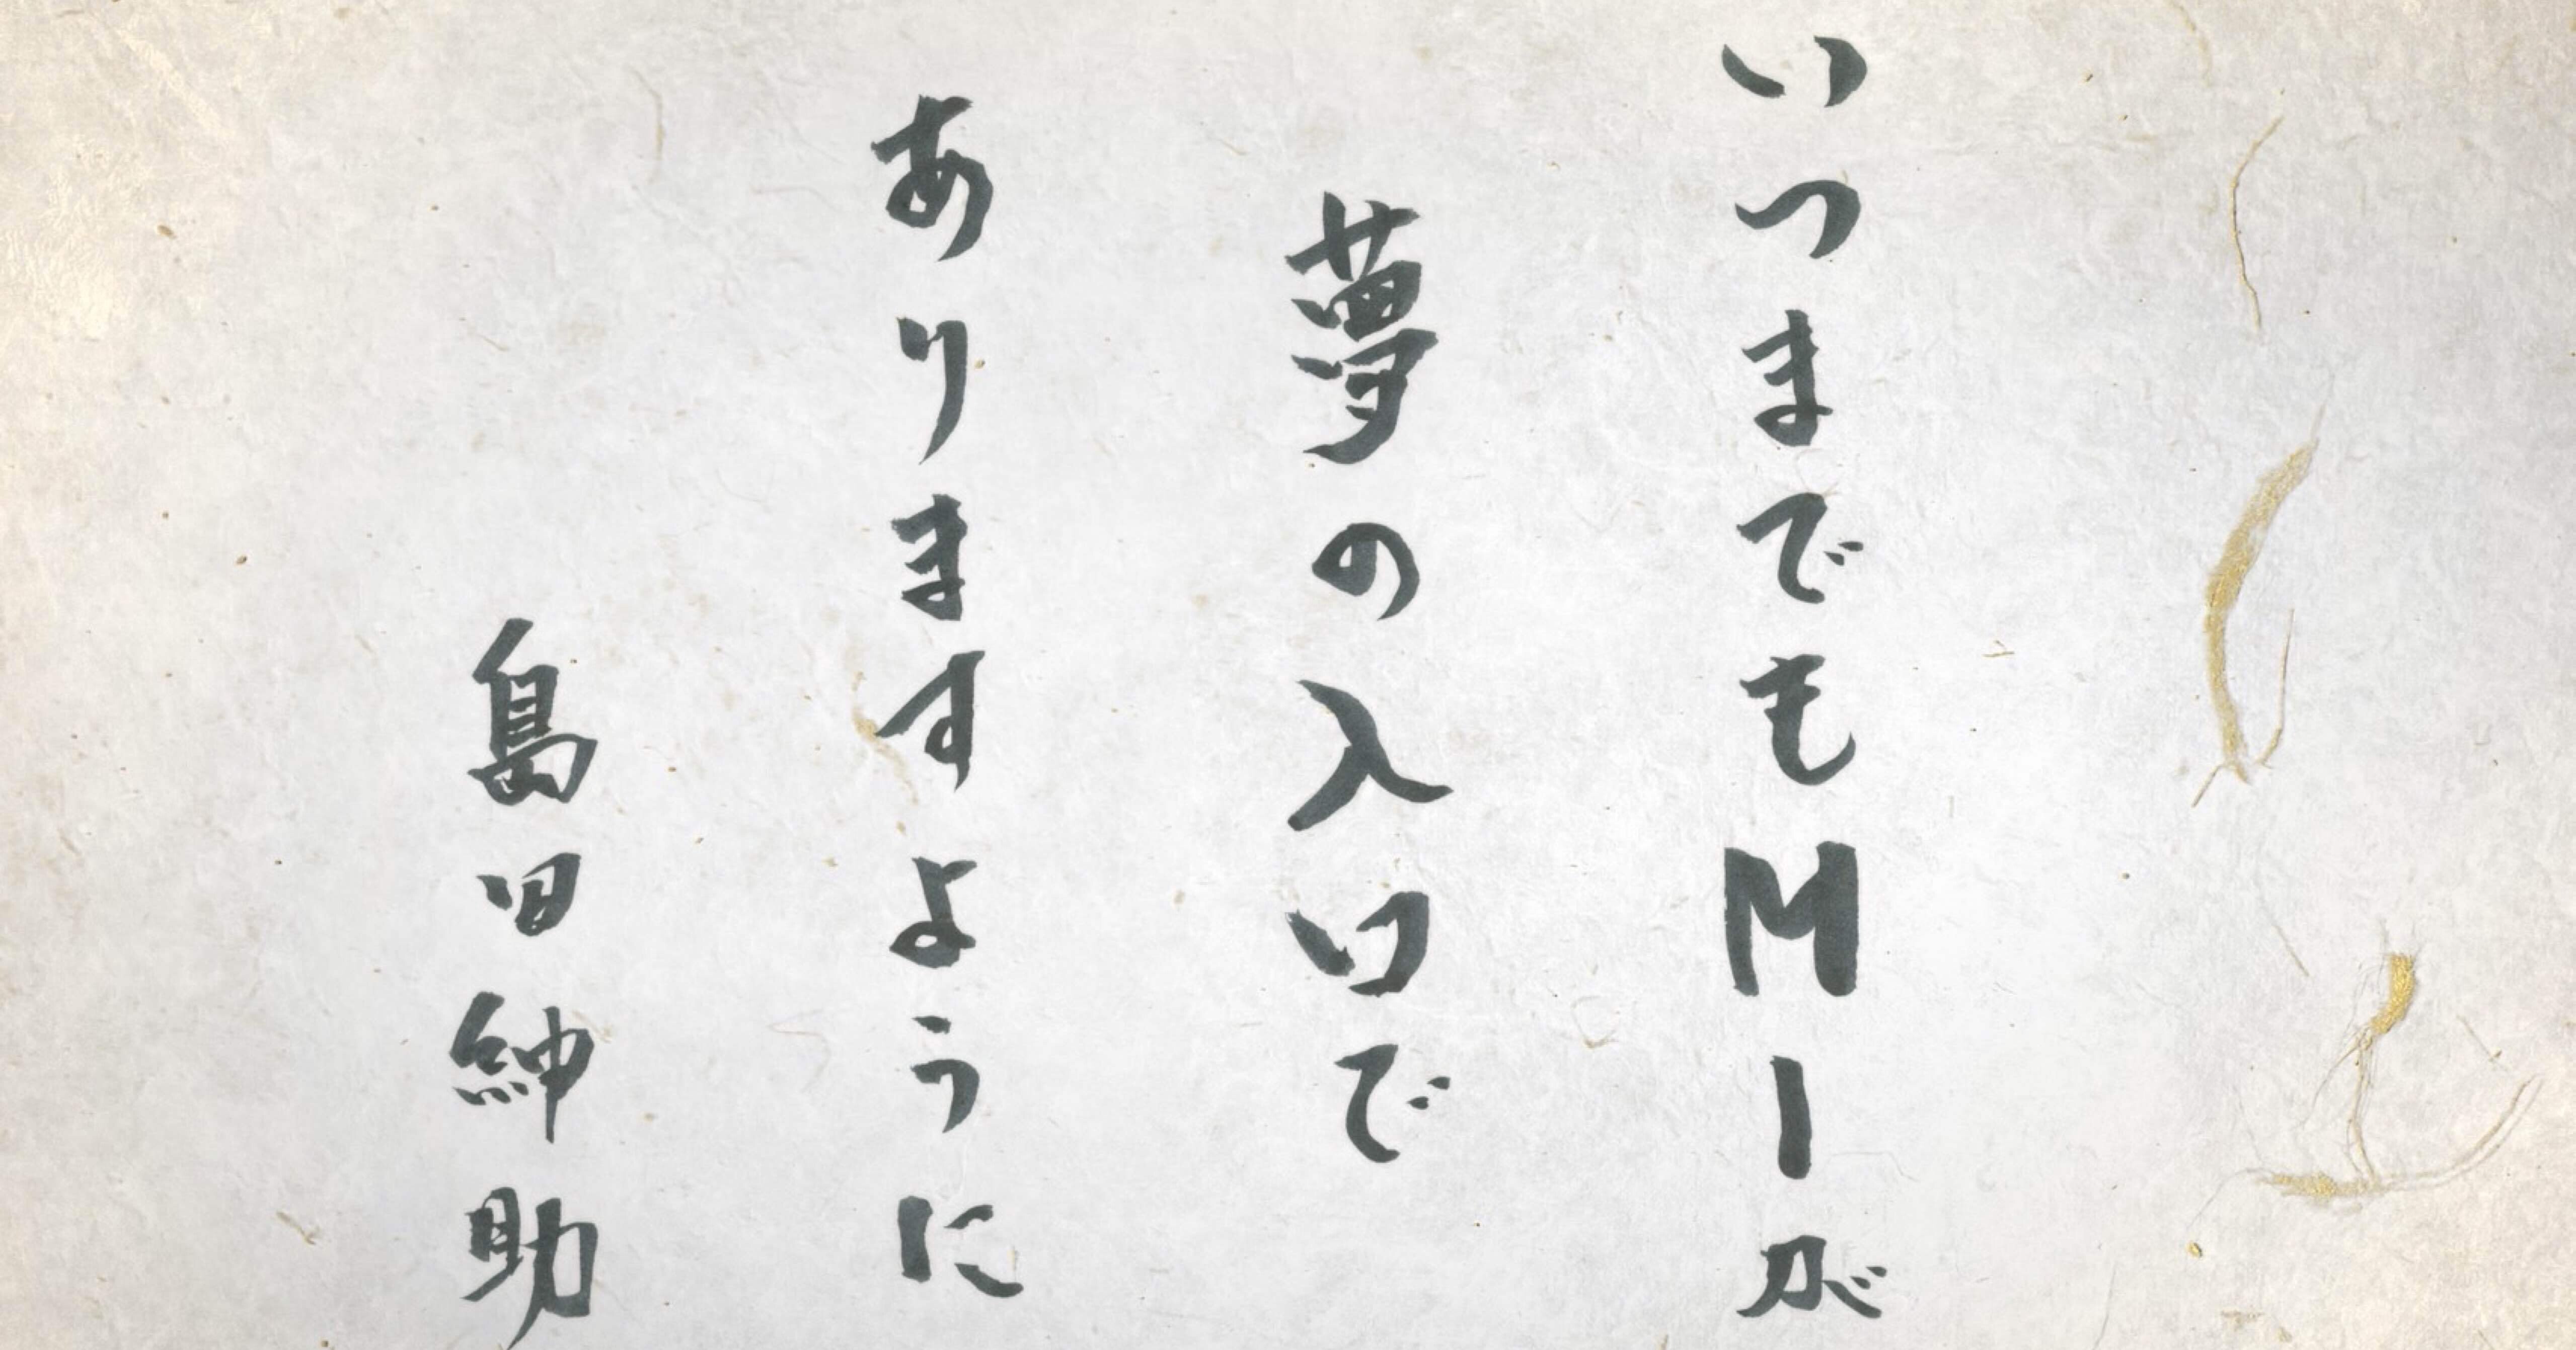 いつまでもM－が
夢の入口で
ありますように
島田紳助